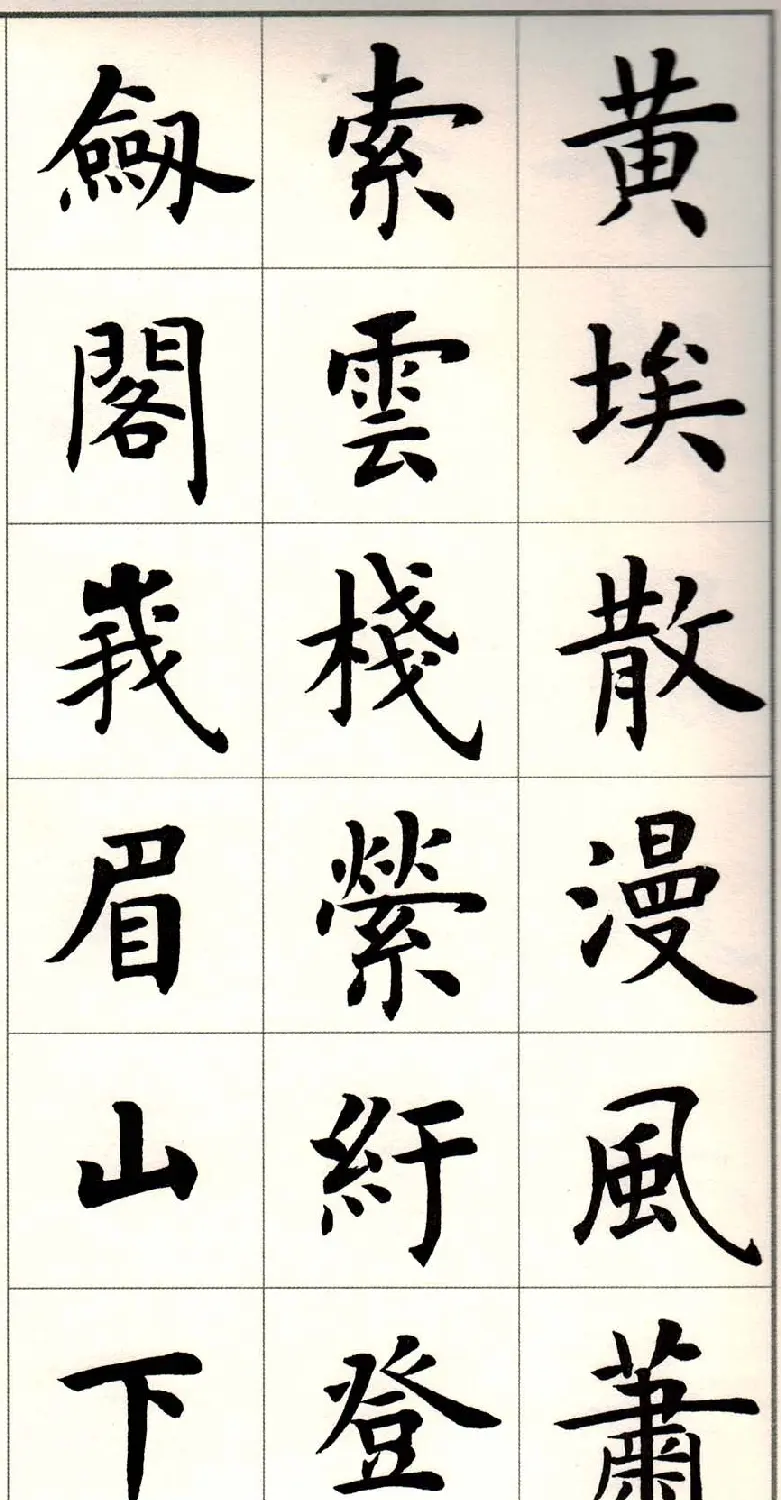 黄埃散漫風蕭
索雲棧縈紆登
劔閣峩眉山下